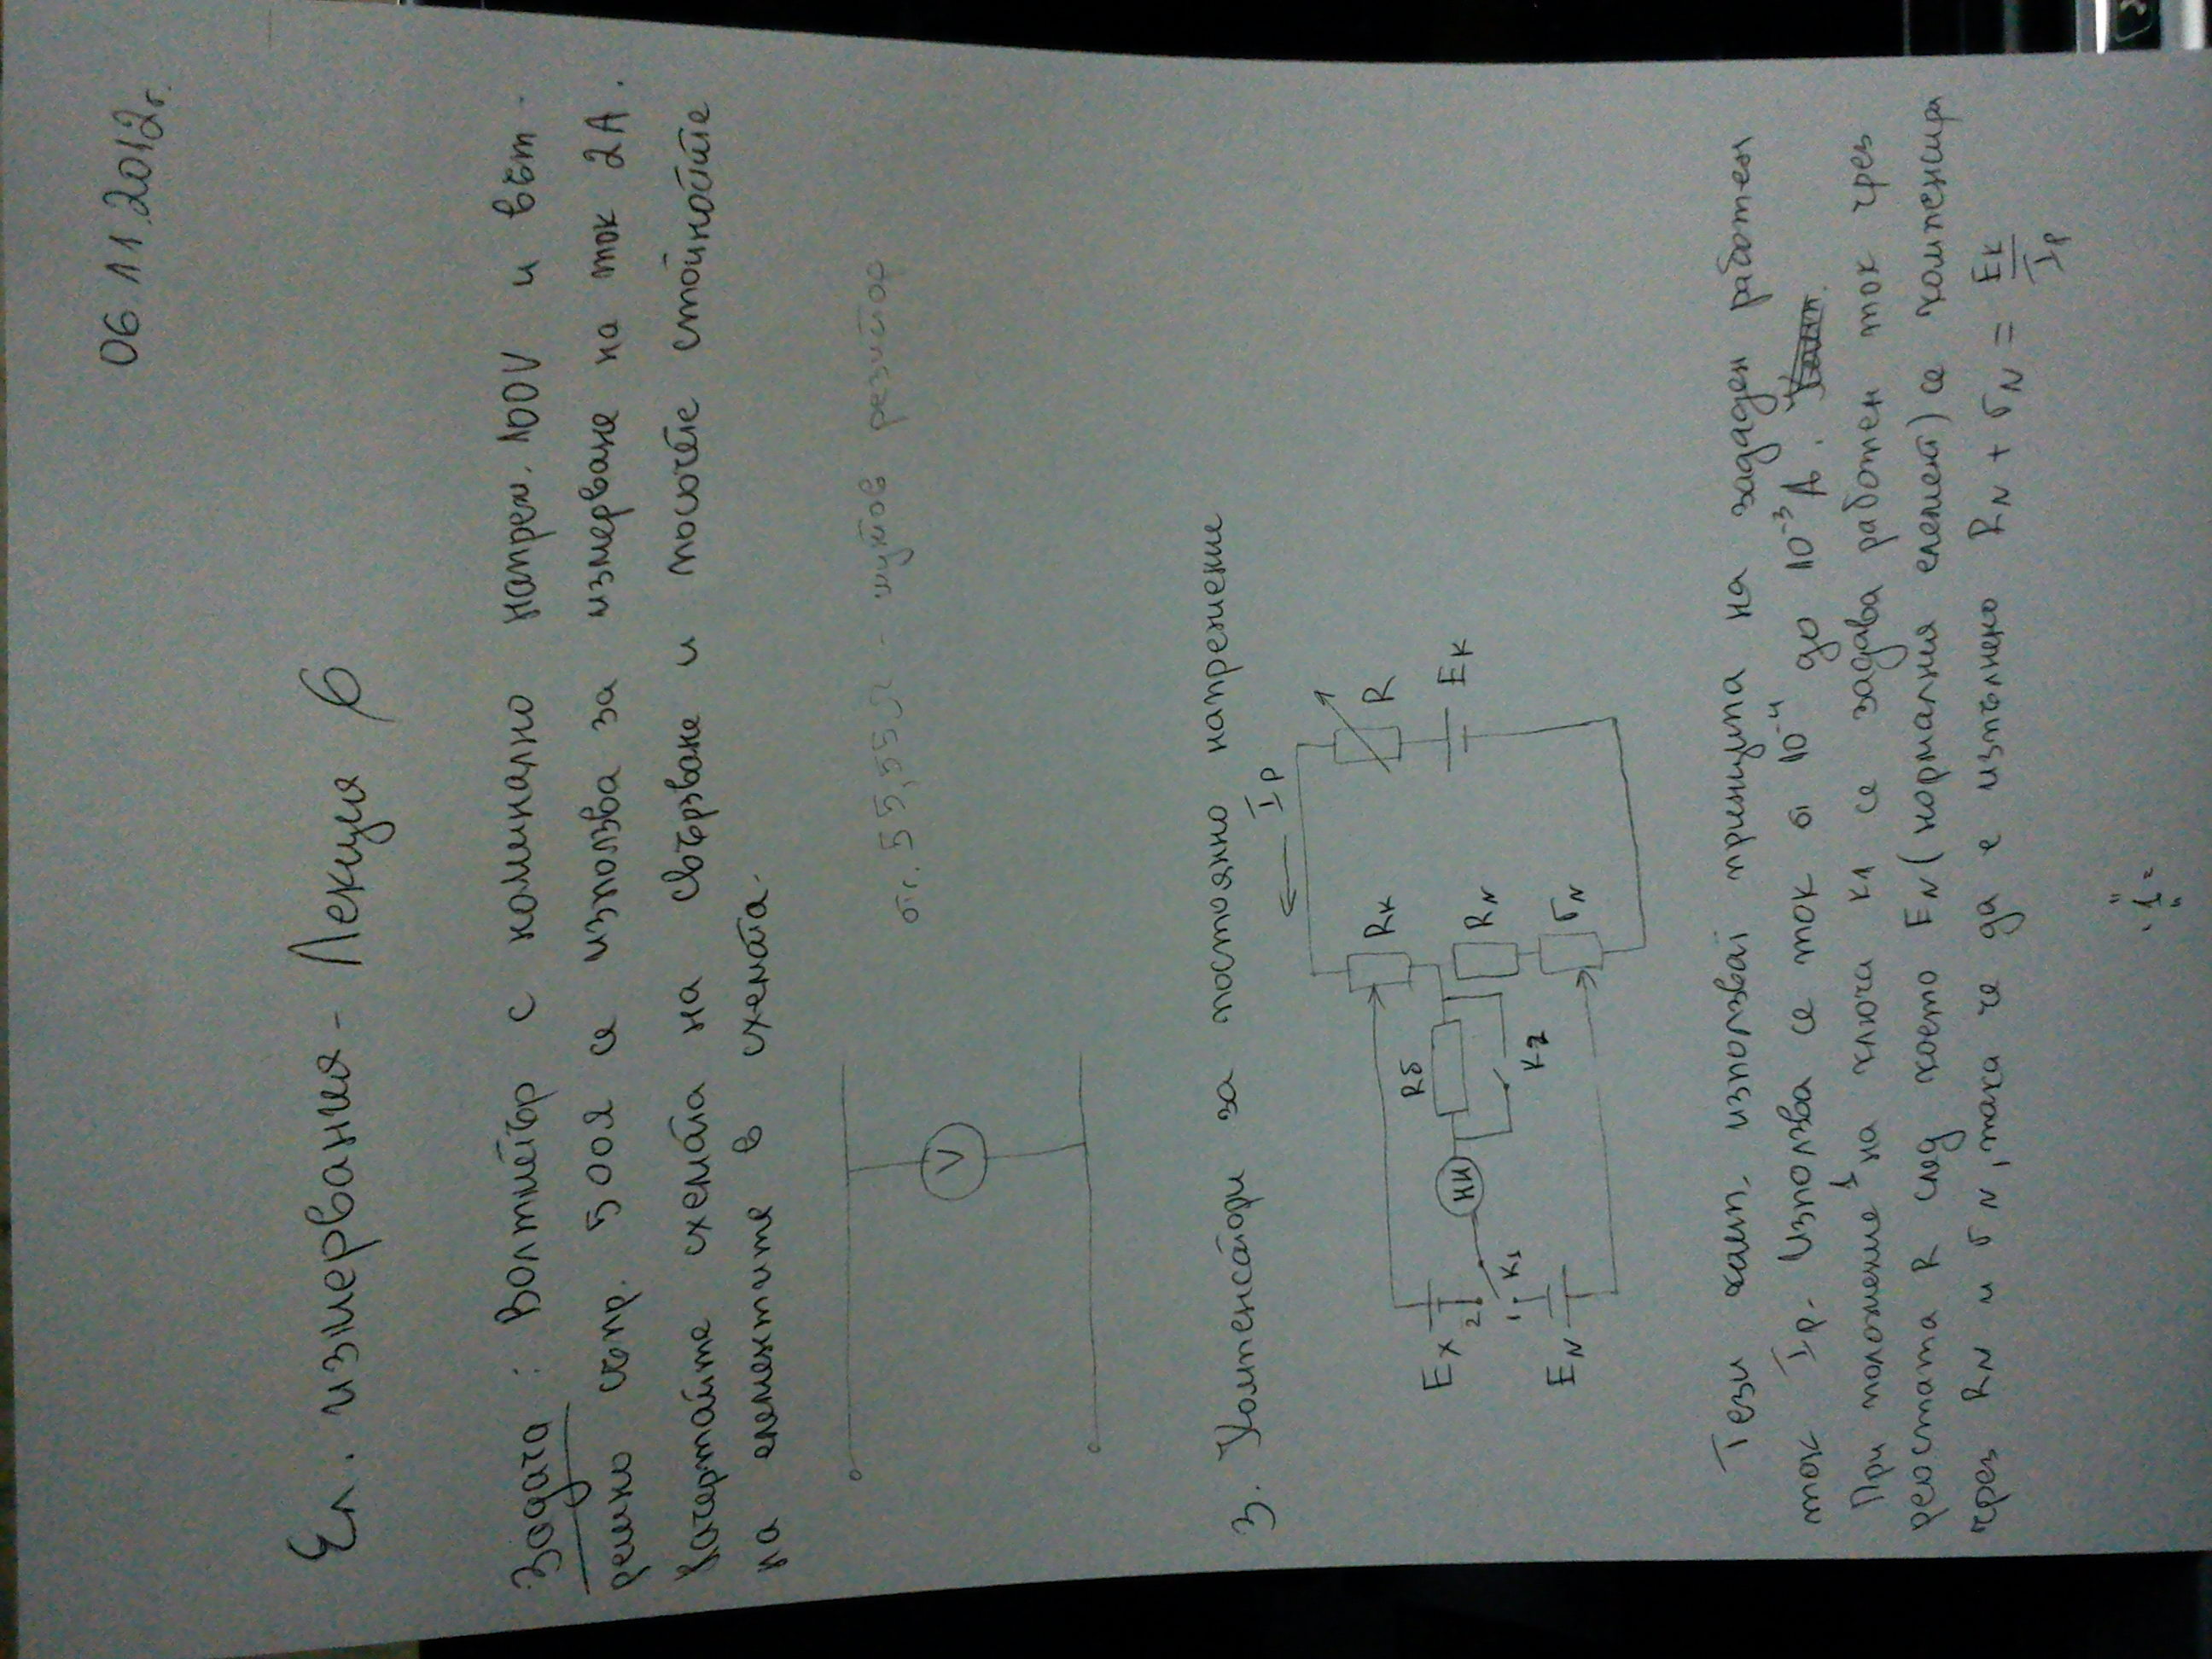 06.11.2012г.
Ел. измервания - Лекция 6
Задача: Волтметър с номинално напреж. 100V и вът-
решно съпр. 500Ω се използва за измерване на ток 2А.
Начертайте схемата на свързване и посочете стойностите
на елементите в схемата.
V
от. 55,55Ω - шунтов резистор
3. Компенсатори за постоянно напрежение
Ip
Rк
R
Rδ
Eк
Ex
НИ
2
K1
K2
RN
1
EN
rN
Тези комп. използват принципа на зададен работен
ток Ip. Използва се ток от 10⁻⁴ до 10⁻³ А.
При положение 1 на ключа K1 се задава работен ток чрез
реостата R след което EN (нормалния елемент) се компенсира
чрез RN и rN, така че да е изпълнено RN + rN = Eк / Ip
"1"